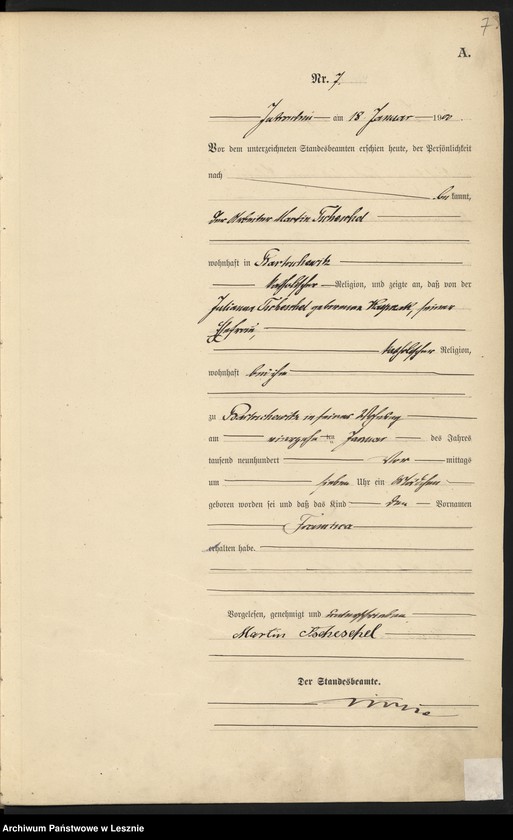 7.
A.
Nr. 7.
am 18. Januar 1900.
Vor dem unterzeichneten Standesbeamten erschien heute, der Persönlichkeit
nach
bekannt,
der Arbeiter Martin Tscheschel
wohnhaft in Bartschewitz
katholischer Religion, und zeigte an, daß von der
Julianna Tscheschel geborenen seiner
Ehefrau,
katholischer Religion,
wohnhaft bei ihm
zu in seiner Wohnung
am vierzehnten Januar des Jahres
tausend neunhundert Vormittags
um sieben Uhr ein Mädchen
geboren worden sei und daß das Kind den Vornamen
erhalten habe.
Vorgelesen, genehmigt und unterschrieben
Martin Tscheschel
Der Standesbeamte.
Archiwum Państwowe w Lesznie